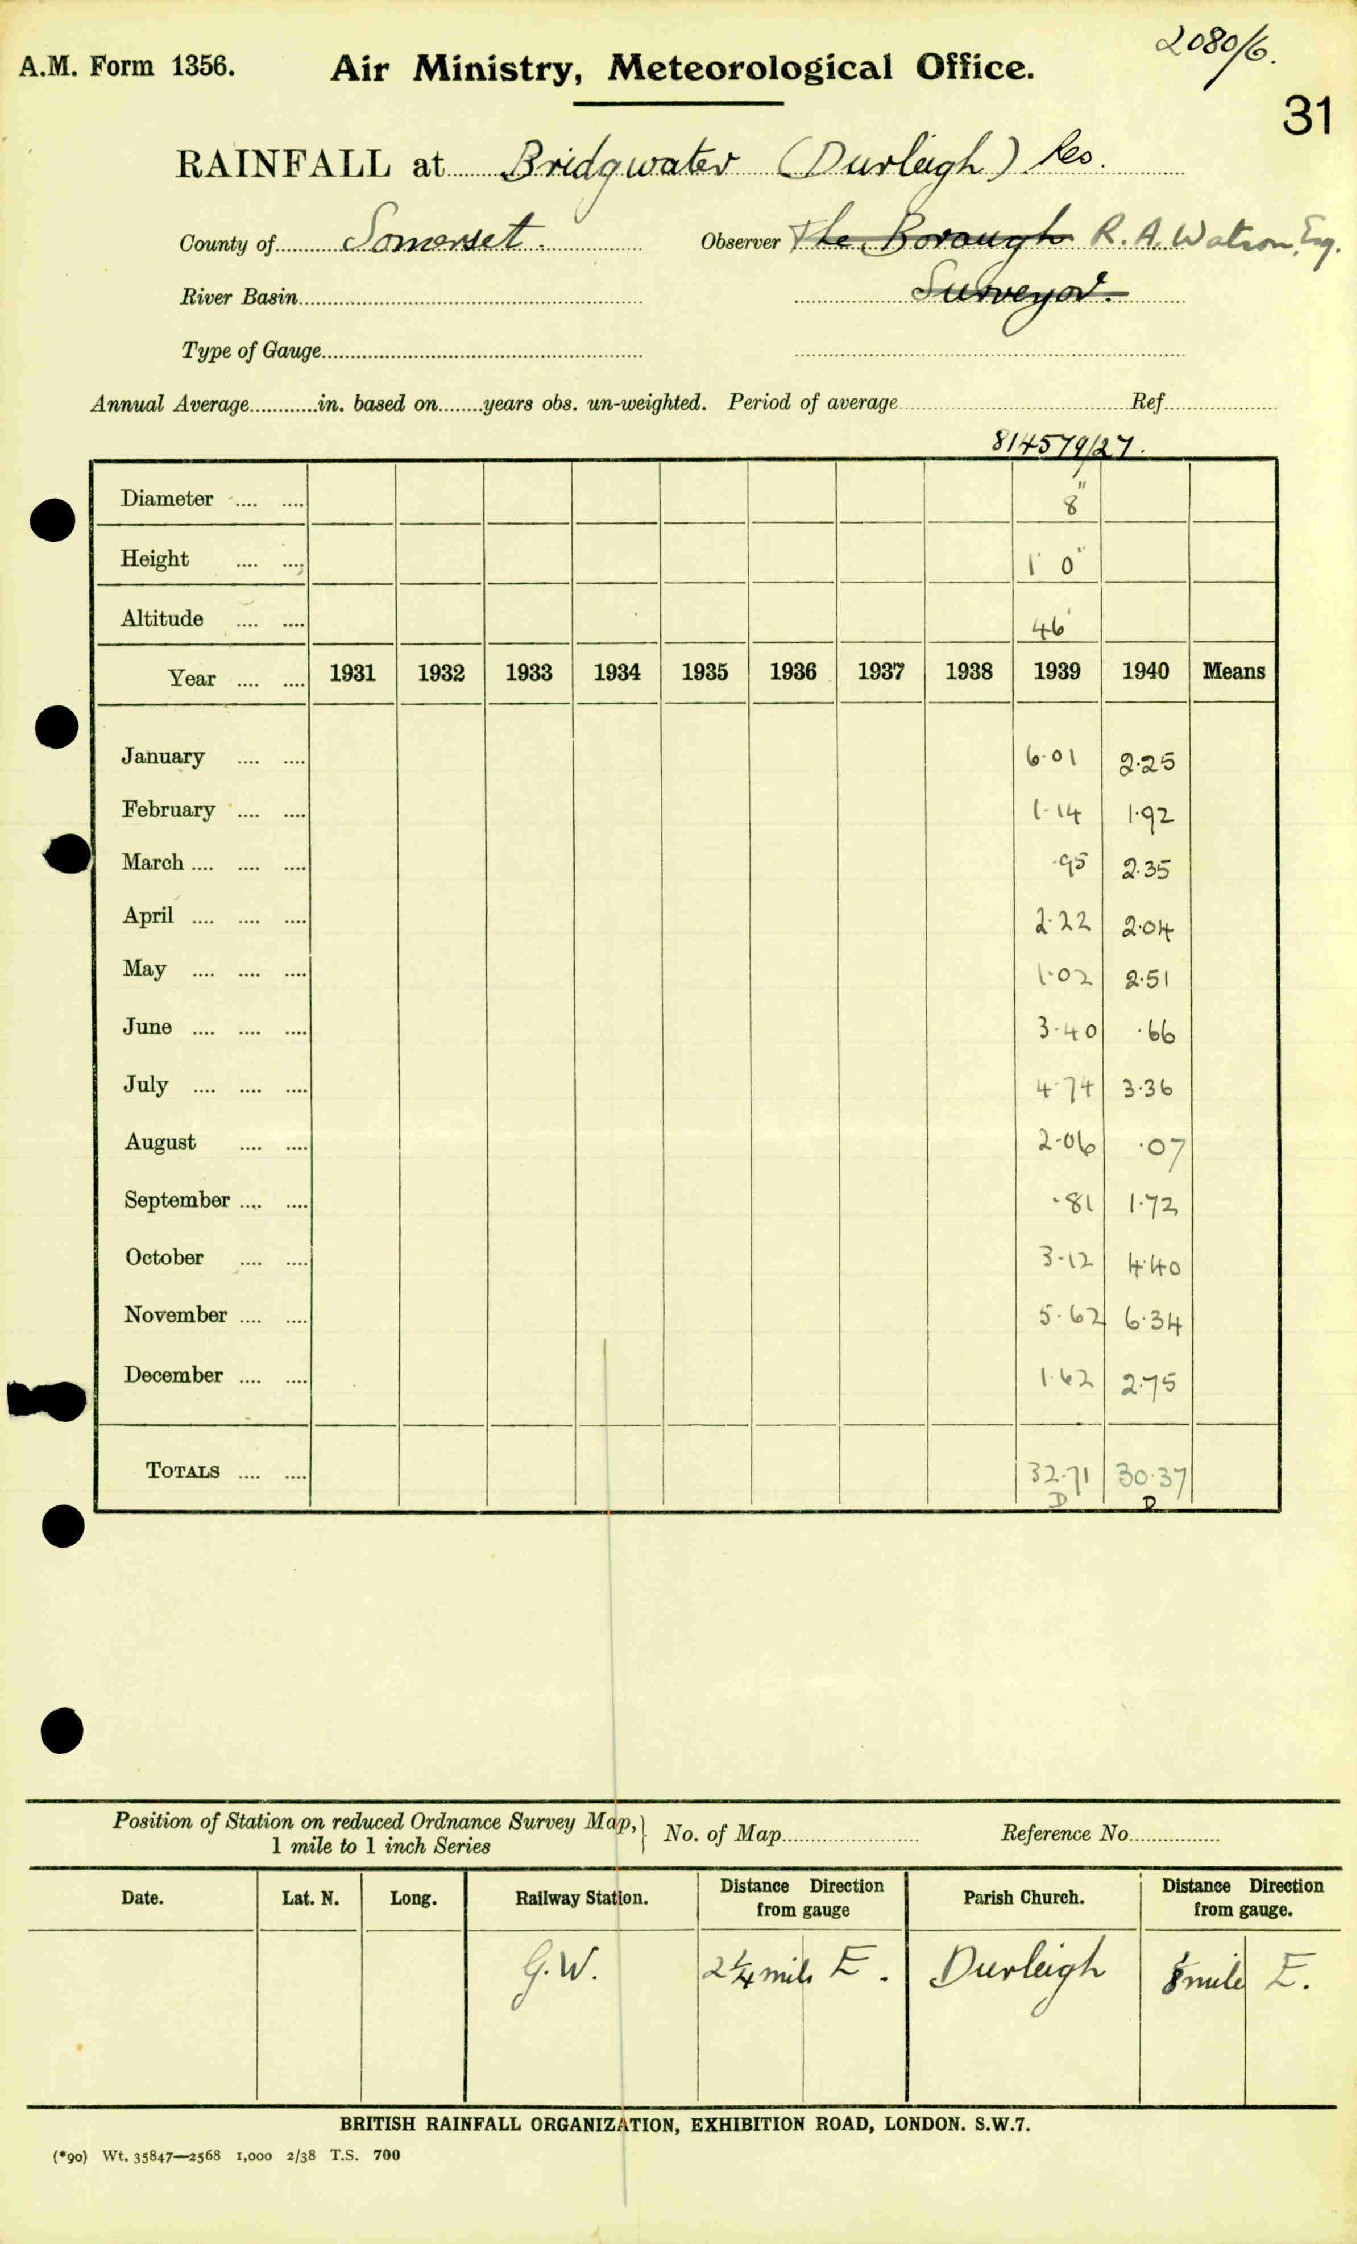 2080/6.
A.M. Form 1356. Air Ministry, Meteorological Office.
31
RAINFALL at Bridgwater (Durleigh) Res.
County of Somerset. Observer The Borough R. A. Watson, Esq.
River Basin Surveyor.
Type of Gauge
Annual Average in. based on years obs. un-weighted. Period of average Ref.
814579/27.
Diameter 8"
Height 1' 0"
Altitude 46'
Year 1931 1932 1933 1934 1935 1936 1937 1938 1939 1940 Means
January 6.01 2.25
February 1.14 1.92
March .95 2.35
April 2.22 2.04
May 1.02 2.51
June 3.40 .66
July 4.74 3.36
August 2.06 .07
September .81 1.72
October 3.12 4.40
November 5.62 6.34
December 1.62 2.75
TOTALS 32.71 30.37
D D
Position of Station on reduced Ordnance Survey Map, } No. of Map Reference No.
1 mile to 1 inch Series
Date. Lat. N. Long. Railway Station. Distance Direction from gauge Parish Church. Distance Direction from gauge.
G.W. 2¼ mils E. Durleigh ⅛ mile E.
BRITISH RAINFALL ORGANIZATION, EXHIBITION ROAD, LONDON. S.W.7.
(*90) Wt. 35847—2568 1,000 2/38 T.S. 700